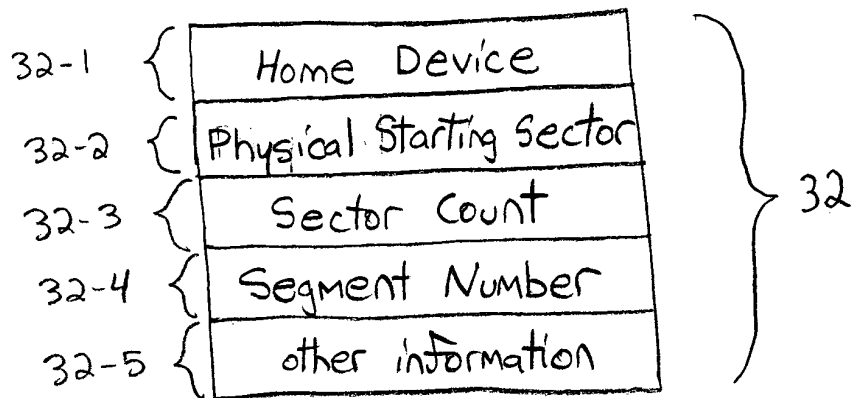 32-1 Home Device
32-2 Physical Starting Sector
32-3 Sector Count 32
32-4 Segment Number
32-5 other information